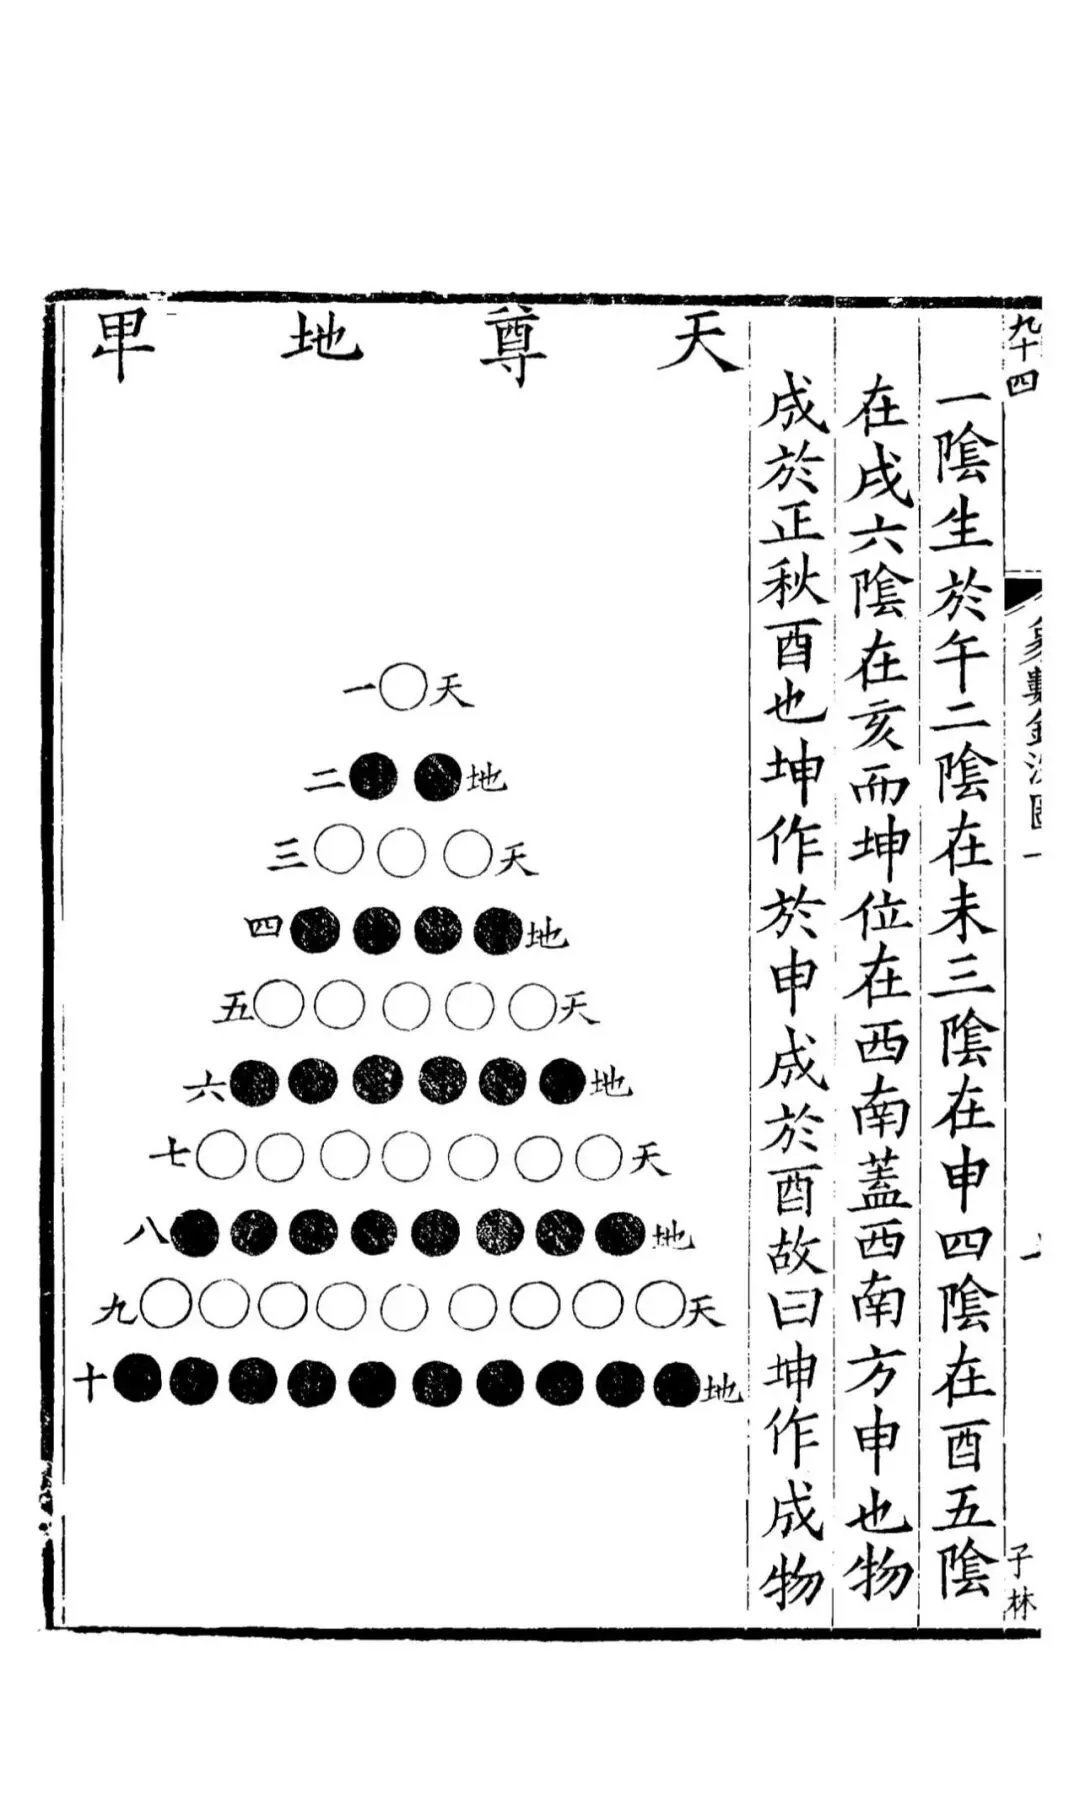 九十四
象數鉤深圖一
子林
一陰生於午二陰在未三陰在申四陰在酉五陰
在戌六陰在亥而坤位在西南蓋西南方申也物
成於正秋酉也坤作於申成於酉故曰坤作成物
天尊地卑
天一
地二
天三
地四
天五
地六
天七
地八
天九
地十